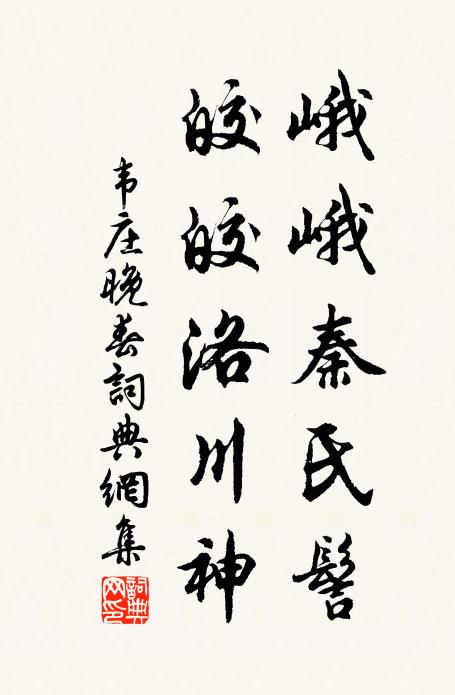 峨峨秦氏髻
皎皎洛川神
韦庄晚春詞典網集
詞典网印